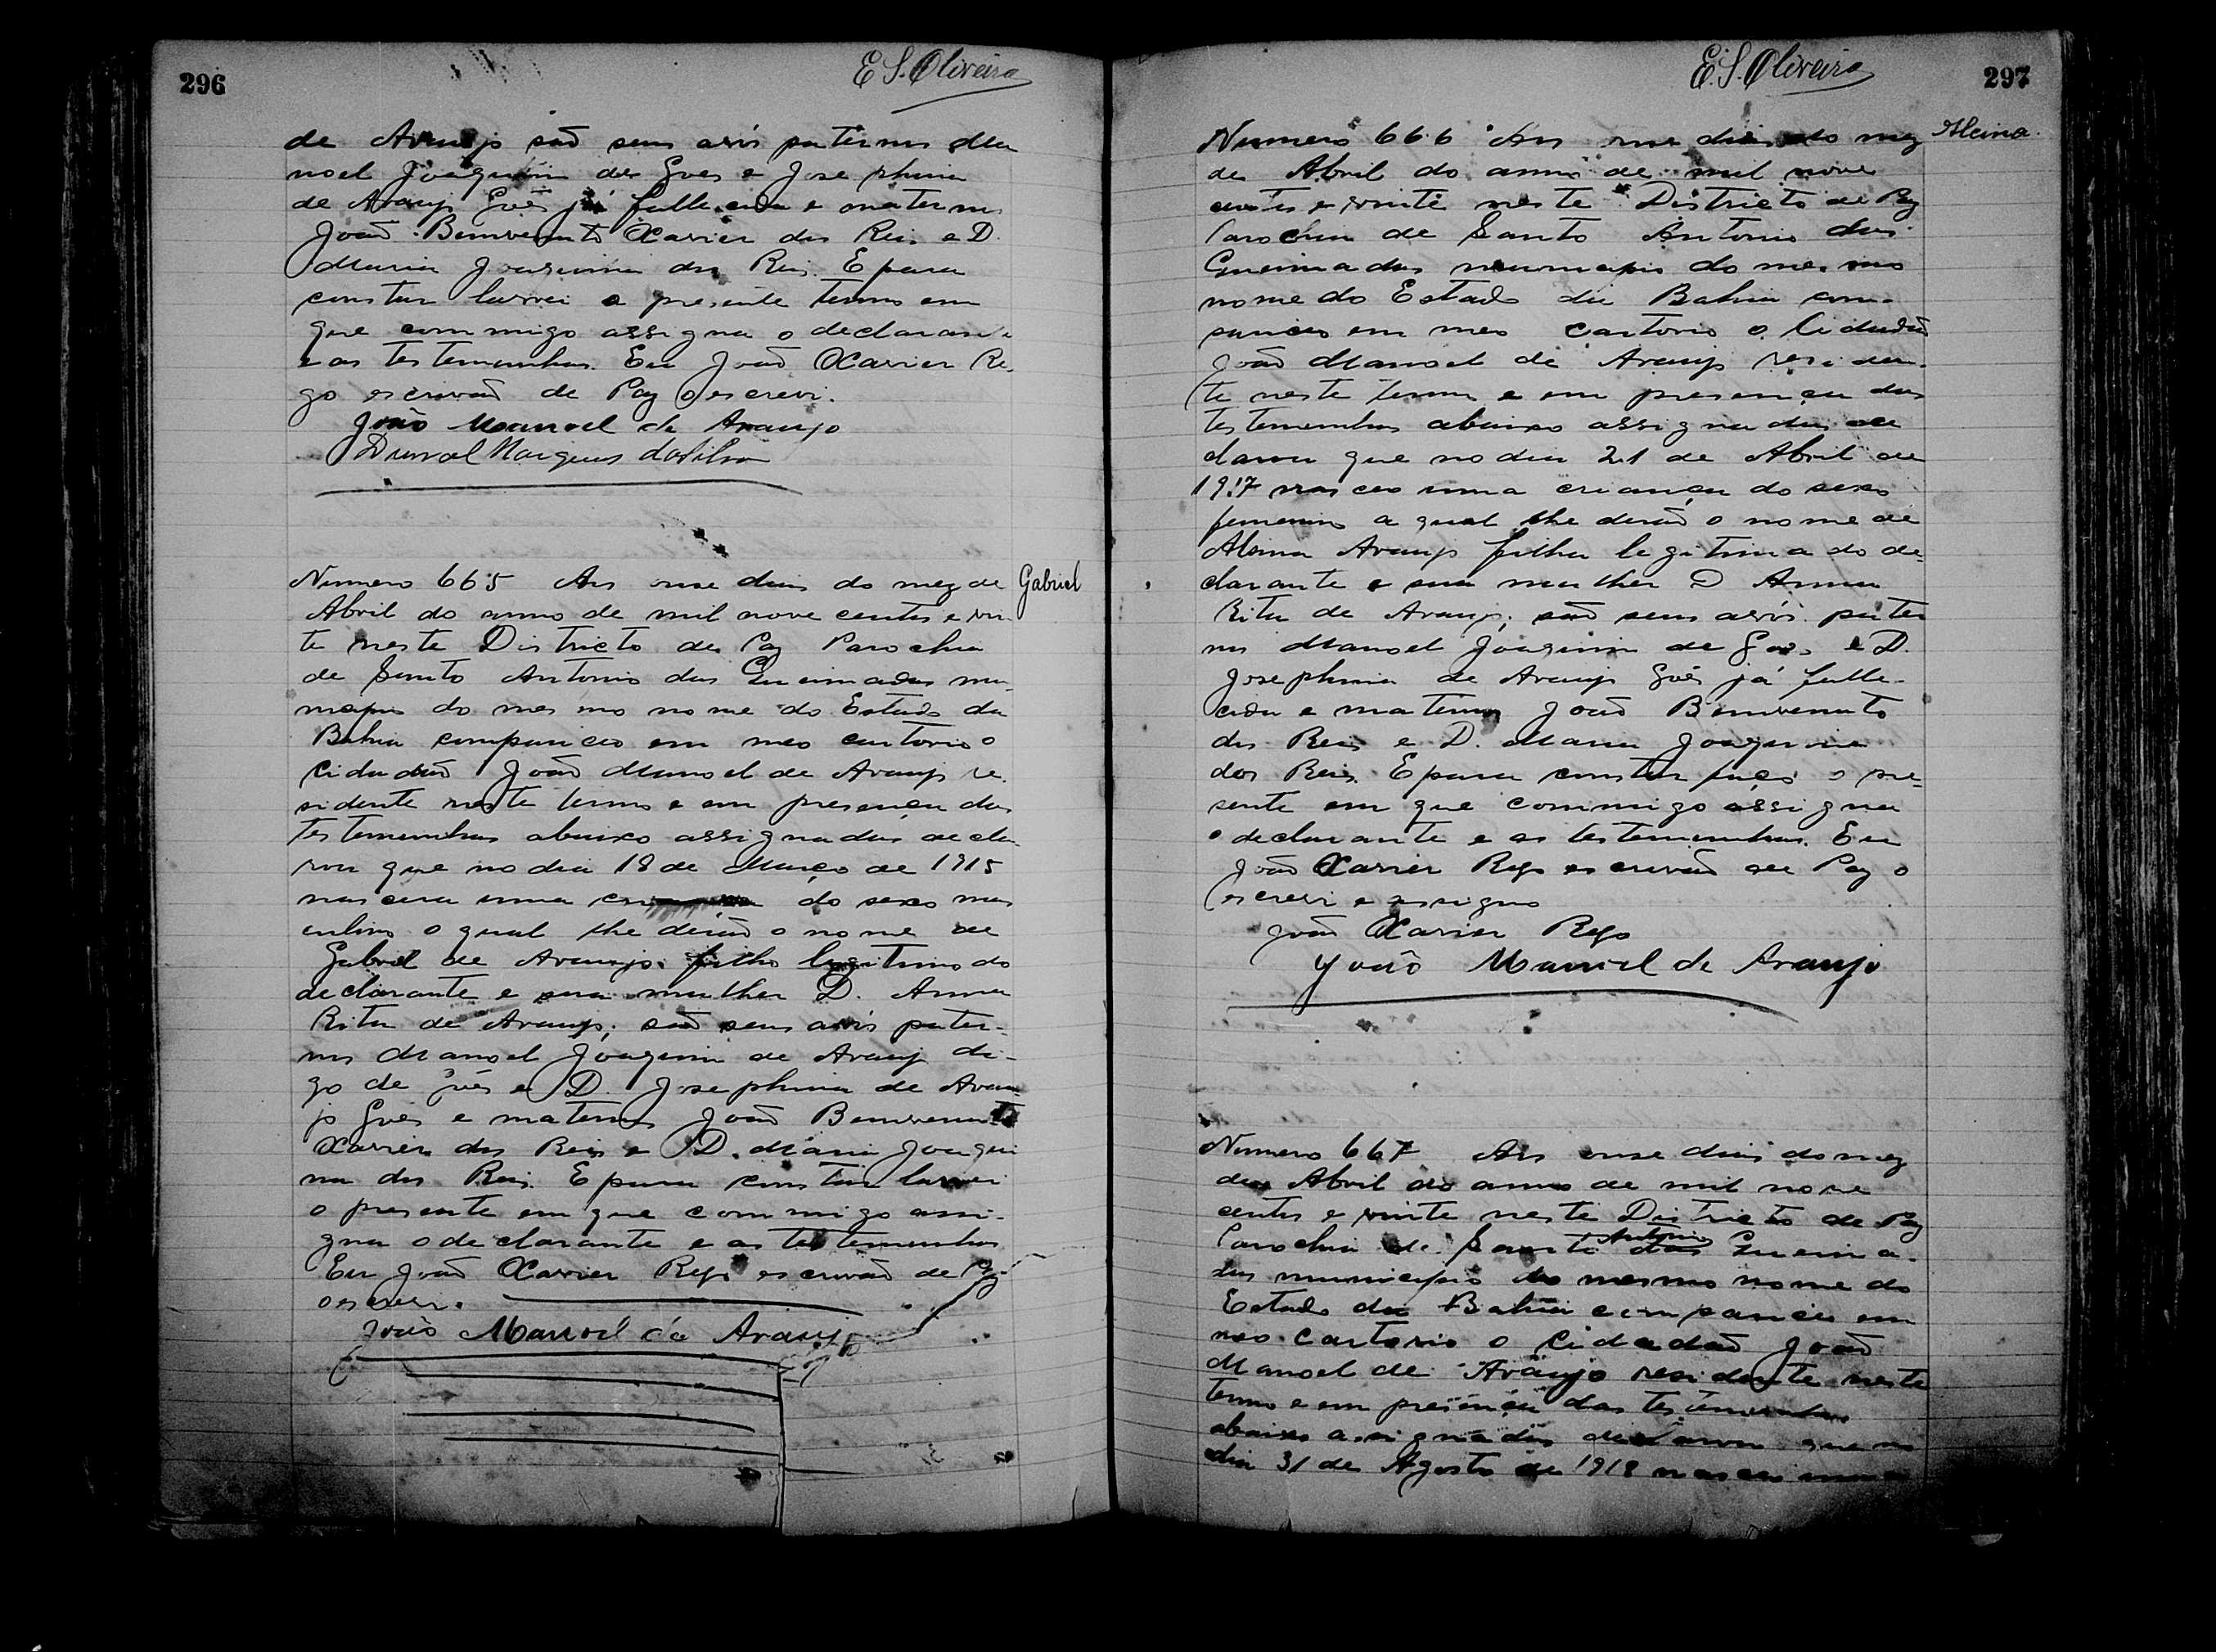 296
E S. Oliveira
de Araujo são seus avós paternos Ma
noel Joaquim de Goes e Josephina
de Araujo Góes já fallecida e maternos
João Bemvenuto Xavier dos Reis e D.
Maria Joaquina dos Reis. E para
constar lavrei o presente termo em
que commigo assigna o declarante
e as testemunhas. Eu João Xavier Re-
go escrivão de Paz o escrevi.
João Manoel de Araujo
Durval Marques da Silva
Gabriel
Numero 665 Aos onse dias do mez de
Abril do anno de mil nove centos e vin
te neste Districto de Paz Parochia
de Santo Antonio das Queimadas mu-
nicipio do mesmo nome do Estado da
Bahia compareceo em meo cartorio o
cidadão João Manoel de Araujo re-
sidente neste termo e em presença das
testemunhas abaixo assignadas decla
rou que no dia 18 de Março de 1915
nascera uma criança do sexo mas
culino o qual lhe derão o nome de
Gabriel de Araujo filho legitimo do
declarante e sua mulher D. Anna
Rita de Araujo; são seus avós pater-
nos Manoel Joaquim de Araujo di-
go de Góes e D. Josephina de Arau
jo Góes e maternos João Bemvenuto
Xavier dos Reis e D. Maria Joaqui
na dos Reis. E para constar lavrei
o presente em que commigo assi-
gna o declarante e as testemunhas
Eu João Xavier Rego escrivão de Paz
o escrevi.
João Manoel de Araujo
297
E. S. Oliveira
Alcina
Numero 666 Aos onse dias do mez
de Abril do anno de mil nove
centos e vinte neste Districto de Paz
Parochia de Santo Antonio das
Queimadas municipio do mesmo
nome do Estado da Bahia com-
pareceo em meo cartorio o Cidadão
João Manoel de Araujo residen-
te neste termo e em presença das
testemunhas abaixo assignadas de
clarou que no dia 21 de Abril de
1917 nasceo uma criança do sexo
femenino a qual lhe derão o nome de
Alcina Araujo filha legitima do de-
clarante e sua mulher D Anna
Rita de Araujo; são seus avós pater
nos Manoel Joaquim de Goes e D.
Josephina de Araujo Góes já falle-
cida e maternos João Bemvenuto
dos Reis e D. Maria Joaquina
dos Reis. E para constar faço o pre-
sente em que commigo assigna
o declarante e as testemunhas. Eu
João Xavier Rego escrivão de Paz o
escrevi e assigno
João Xavier Rego
João Manoel de Araujo
Numero 667 Aos onse dias do mez
de Abril do anno de mil nove
centos e vinte neste Districto de Paz
Parochia de Santo Antonio das Queima-
das municipio do mesmo nome do
Estado da Bahia compareceo em
meo cartorio o Cidadão João
Manoel de Araujo residente neste
termo e em presença das testemunhas
abaixo assignadas declarou que no
dia 31 de Agosto de 1918 nasceo uma